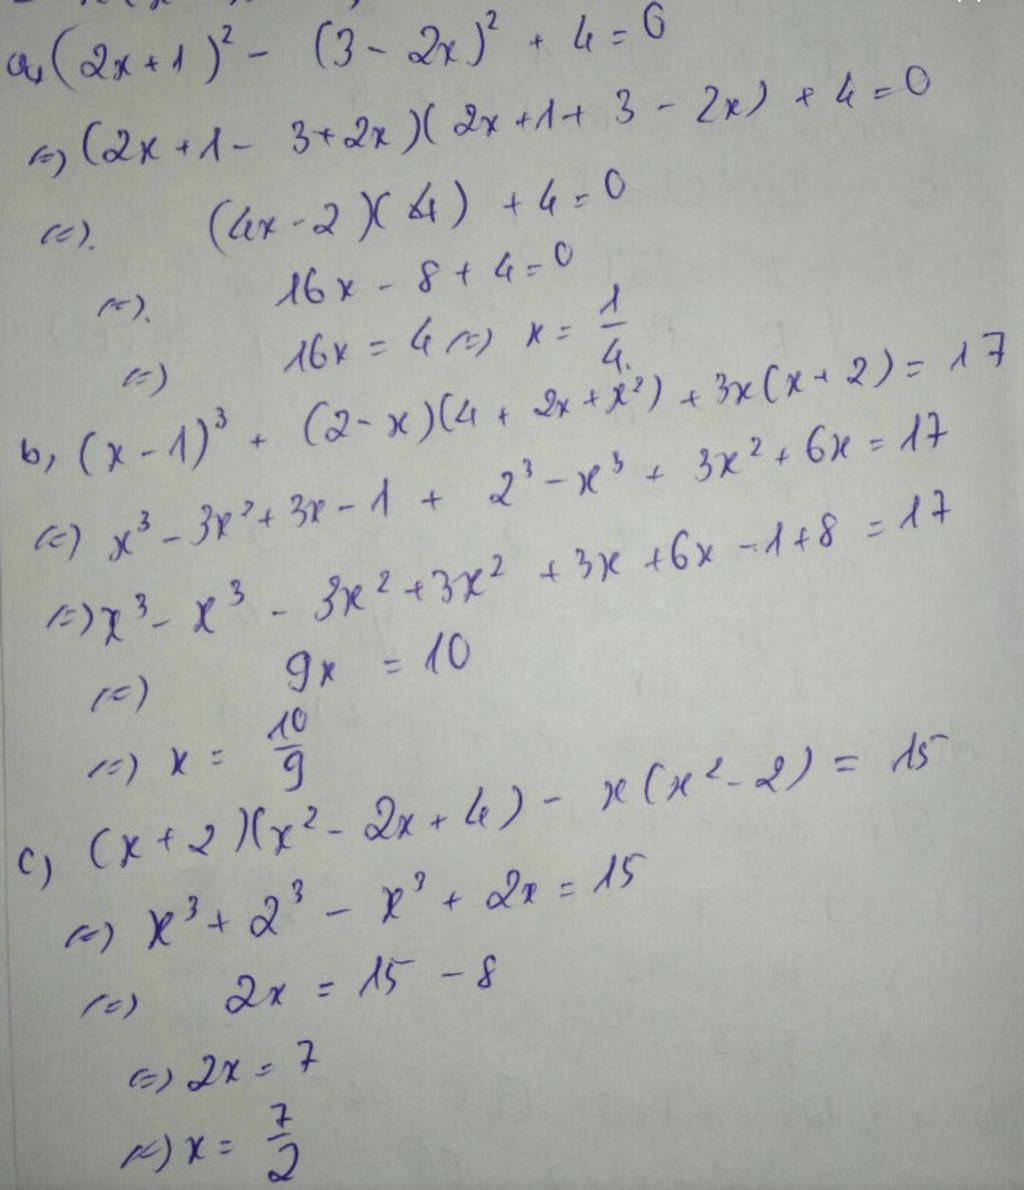 a, (2x+1)² - (3 - 2x)² + 4 = 0
<=> (2x+1 - 3+2x)(2x+1+3 - 2x) + 4 = 0
<=>. (4x - 2)(4) + 4 = 0
<=>. 16x - 8 + 4 = 0
<=> 16x = 4 <=> x = 1/4.
b, (x - 1)³ + (2 - x)(4 + 2x + x²) + 3x(x + 2) = 17
<=> x³ - 3x² + 3x - 1 + 2³ - x³ + 3x² + 6x = 17
<=> x³ - x³ - 3x² + 3x² + 3x + 6x - 1 + 8 = 17
<=> 9x = 10
<=> x = 10/9
c, (x + 2)(x² - 2x + 4) - x(x² - 2) = 15
<=> x³ + 2³ - x³ + 2x = 15
<=> 2x = 15 - 8
<=> 2x = 7
<=> x = 7/2